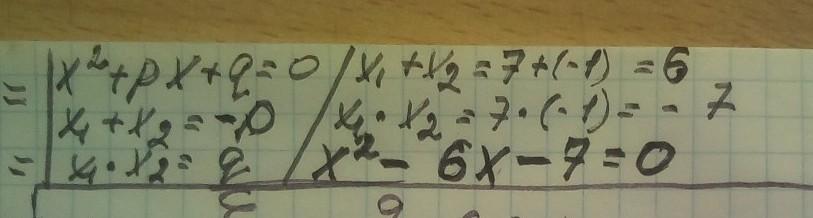 = x²+px+q=0 / x₁+x₂=7+(-1)=6
x₁+x₂=-p / x₁·x₂=7·(-1)=-7
= x₁·x₂=q / x²-6x-7=0